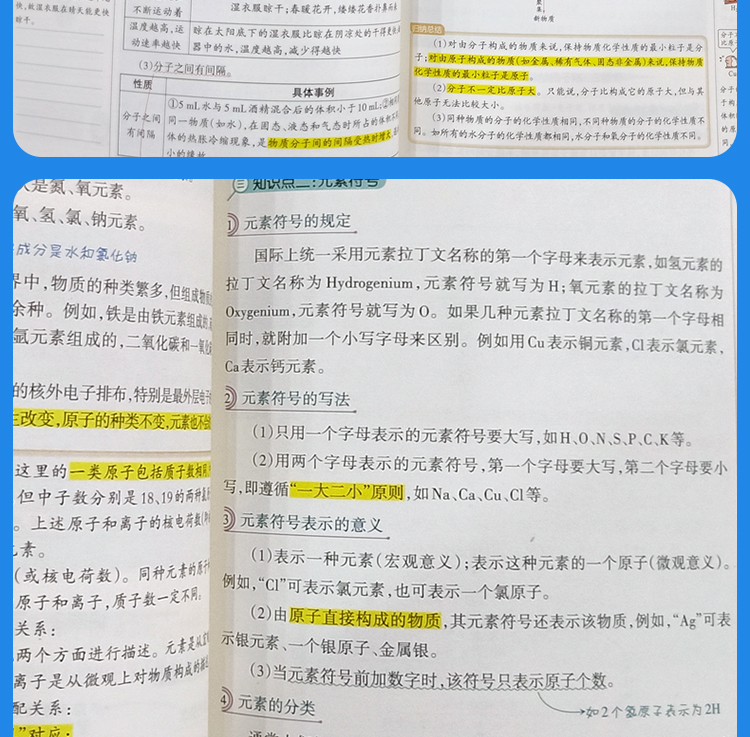 快,故湿衣服在晴天能更快
晾干。
不断运动着
衣服晾干;春暖花开,缕缕花香扑鼻
温度越高,运
动速率越快
晾在太阳底下的湿衣服比晾在阴凉处的干得更快
器中的水,温度越高,减少得越快
(3)分子之间有间隔。
性质
具体事例
分子之间
有间隔
①5 mL水与5 mL酒精混合后的体积小于10 mL;②
同一物质(如水),在固态、液态和气态时所占的体积不
体的热胀冷缩现象,是物质分子间的间隔受热时增大
小的缘故
聚
集
新物质
归纳总结
(1)对由分子构成的物质来说,保持物质化学性质的最小粒子是分
子;对由原子构成的物质(如金属、稀有气体、固态非金属)来说,保持物质
化学性质的最小粒子是原子。
(2)分子不一定比原子大。只能说,分子比构成它的原子大,但与其
他原子无法比较大小。
(3)同种物质的分子的化学性质相同,不同种物质的分子的化学性质不
同。如所有的水分子的化学性质都相同,水分子和氧分子的化学性质不同。
Cu
是氮、氧元素。
氧、氢、氯、钠元素。
成分是水和氯化钠
界中,物质的种类繁多,但组成物质
余种。例如,铁是由铁元素组成的,
氩元素组成的,二氧化碳和一氧化
的核外电子排布,特别是最外层电子
改变,原子的种类不变,元素也不会
这里的一类原子包括质子数相同
但中子数分别是18、19的两种
。上述原子和离子的核电荷数(
元素。
(或核电荷数)。同种元素的原子
原子和离子,质子数一定不同。
关系:
两个方面进行描述。元素是从宏
离子是从微观上对物质构成的描述
配关系:
”对应:
三 知识点二:元素符号
1 元素符号的规定
国际上统一采用元素拉丁文名称的第一个字母来表示元素,如氢元素的
拉丁文名称为Hydrogenium,元素符号就写为H;氧元素的拉丁文名称为
Oxygenium,元素符号就写为O。如果几种元素拉丁文名称的第一个字母相
同时,就附加一个小写字母来区别。例如用Cu表示铜元素,Cl表示氯元素,
Ca表示钙元素。
2 元素符号的写法
(1)只用一个字母表示的元素符号要大写,如H、O、N、S、P、C、K等。
(2)用两个字母表示的元素符号,第一个字母要大写,第二个字母要小
写,即遵循“一大二小”原则,如Na、Ca、Cu、Cl等。
3 元素符号表示的意义
(1)表示一种元素(宏观意义);表示这种元素的一个原子(微观意义)。
例如,“Cl”可表示氯元素,也可表示一个氯原子。
(2)由原子直接构成的物质,其元素符号还表示该物质,例如,“Ag”可表
示银元素、一个银原子、金属银。
(3)当元素符号前加数字时,该符号只表示原子个数。
4 元素的分类
如2个氢原子表示为2H